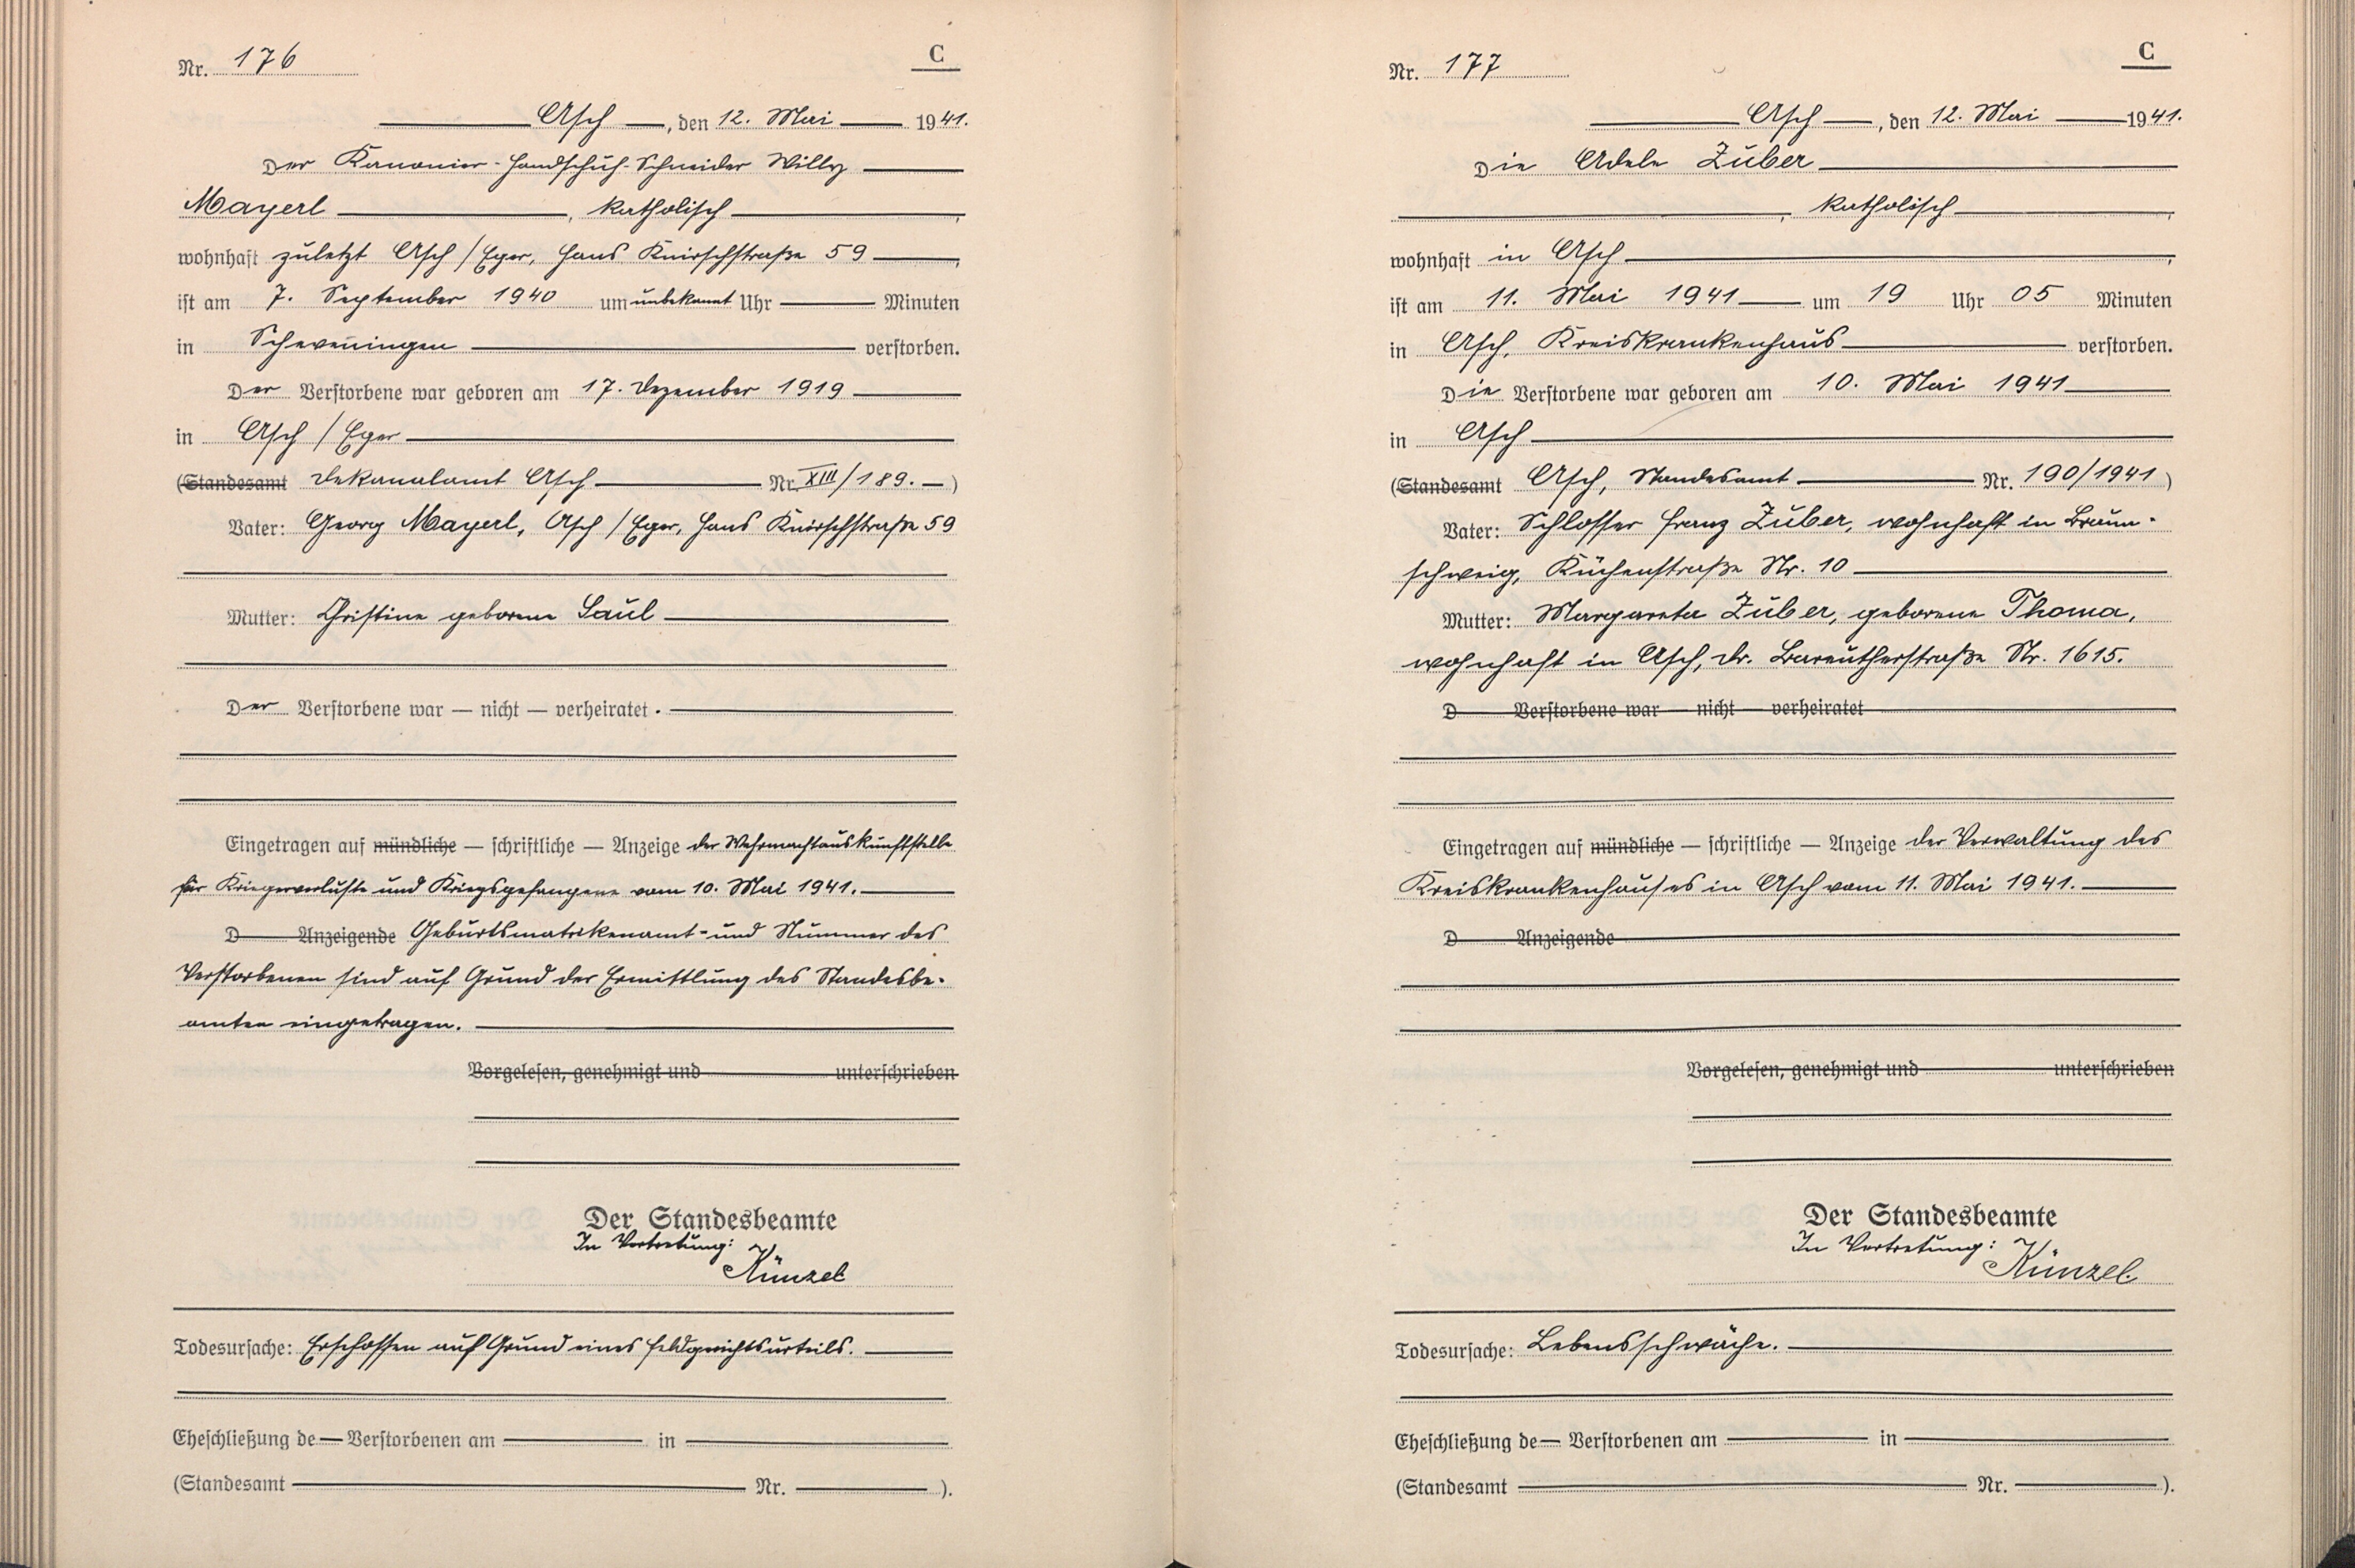 Nr. 176
C
Asch, den 12. Mai 1941.
Der Kanonier-Handschuh-Schneider Willy
Mayerl, katholisch,
wohnhaft zuletzt Asch/Eger, Hans Knirschstraße 59,
ist am 7. September 1940 um unbekannt Uhr Minuten
in Scheveningen verstorben.
Der Verstorbene war geboren am 17. Dezember 1919
in Asch/Eger
(Standesamt Dekanalamt Asch Nr. XIII/189.)
Vater: Georg Mayerl, Asch/Eger, Hans Knirschstraße 59
Mutter: Christine geborene Saul
Der Verstorbene war — nicht — verheiratet.
Eingetragen auf mündliche — schriftliche — Anzeige der Wehrmachtauskunftstelle
für Kriegerverluste und Kriegsgefangene vom 10. Mai 1941.
D Anzeigende Geburtsmatrikenamt- und Nummer des
Verstorbenen sind auf Grund der Ermittlung des Standesbe-
amten eingetragen.
Vorgelesen, genehmigt und unterschrieben
Der Standesbeamte
In Vertretung:
Künzel
Todesursache: Erschossen auf Grund eines Feldgerichtsurteils.
Eheschließung de Verstorbenen am in
(Standesamt Nr. ).
Nr. 177
C
Asch, den 12. Mai 1941.
Die Adele Zuber
, katholisch,
wohnhaft in Asch,
ist am 11. Mai 1941 um 19 Uhr 05 Minuten
in Asch, Kreiskrankenhaus verstorben.
Die Verstorbene war geboren am 10. Mai 1941
in Asch
(Standesamt Asch, Standesamt Nr. 190/1941)
Vater: Schlosser Franz Zuber, wohnhaft in Braun-
schweig, Küchenstraße Nr. 10
Mutter: Margareta Zuber, geborene Thoma,
wohnhaft in Asch, Dr. Bareutherstraße Nr. 1615.
D Verstorbene war — nicht — verheiratet
Eingetragen auf mündliche — schriftliche — Anzeige der Verwaltung des
Kreiskrankenhauses in Asch vom 11. Mai 1941.
D Anzeigende
Vorgelesen, genehmigt und unterschrieben
Der Standesbeamte
In Vertretung:
Künzel.
Todesursache: Lebensschwäche.
Eheschließung de Verstorbenen am in
(Standesamt Nr. ).